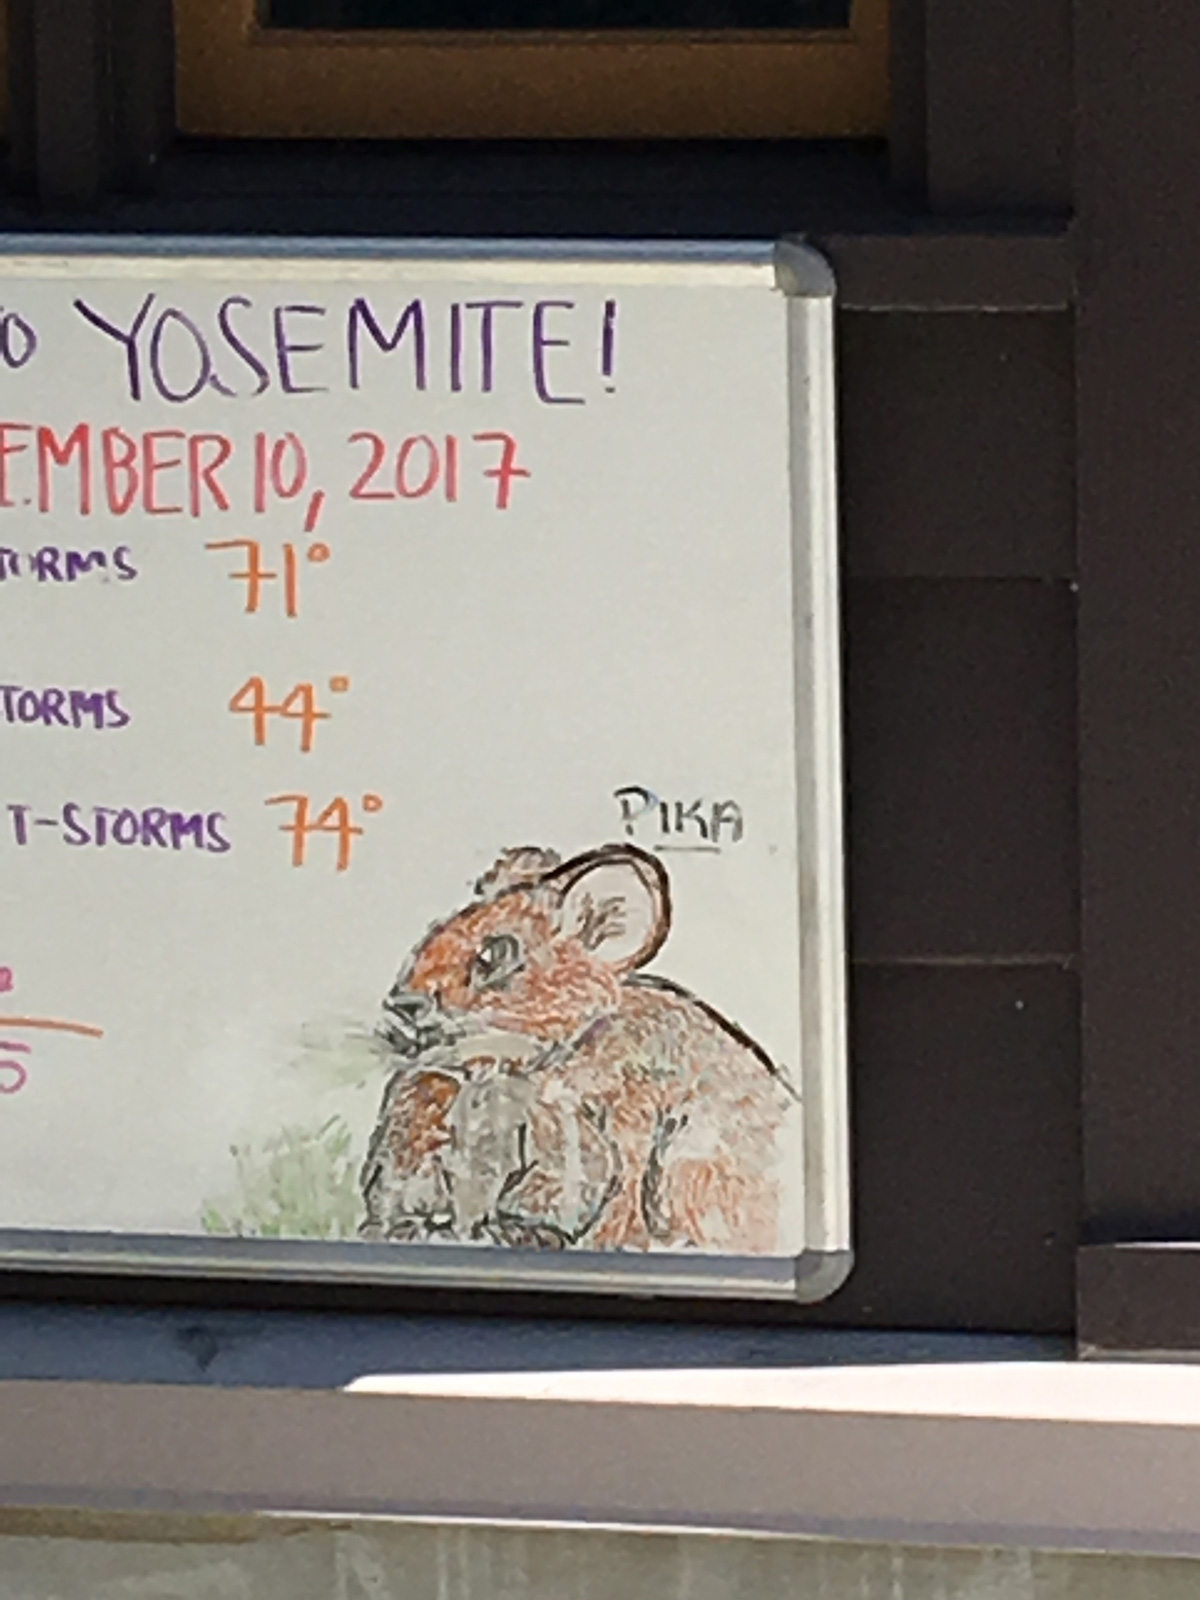 TO YOSEMITE!
EMBER 10, 2017
TORMS 71°
TORMS 44°
T-STORMS 74°
PIKA
5